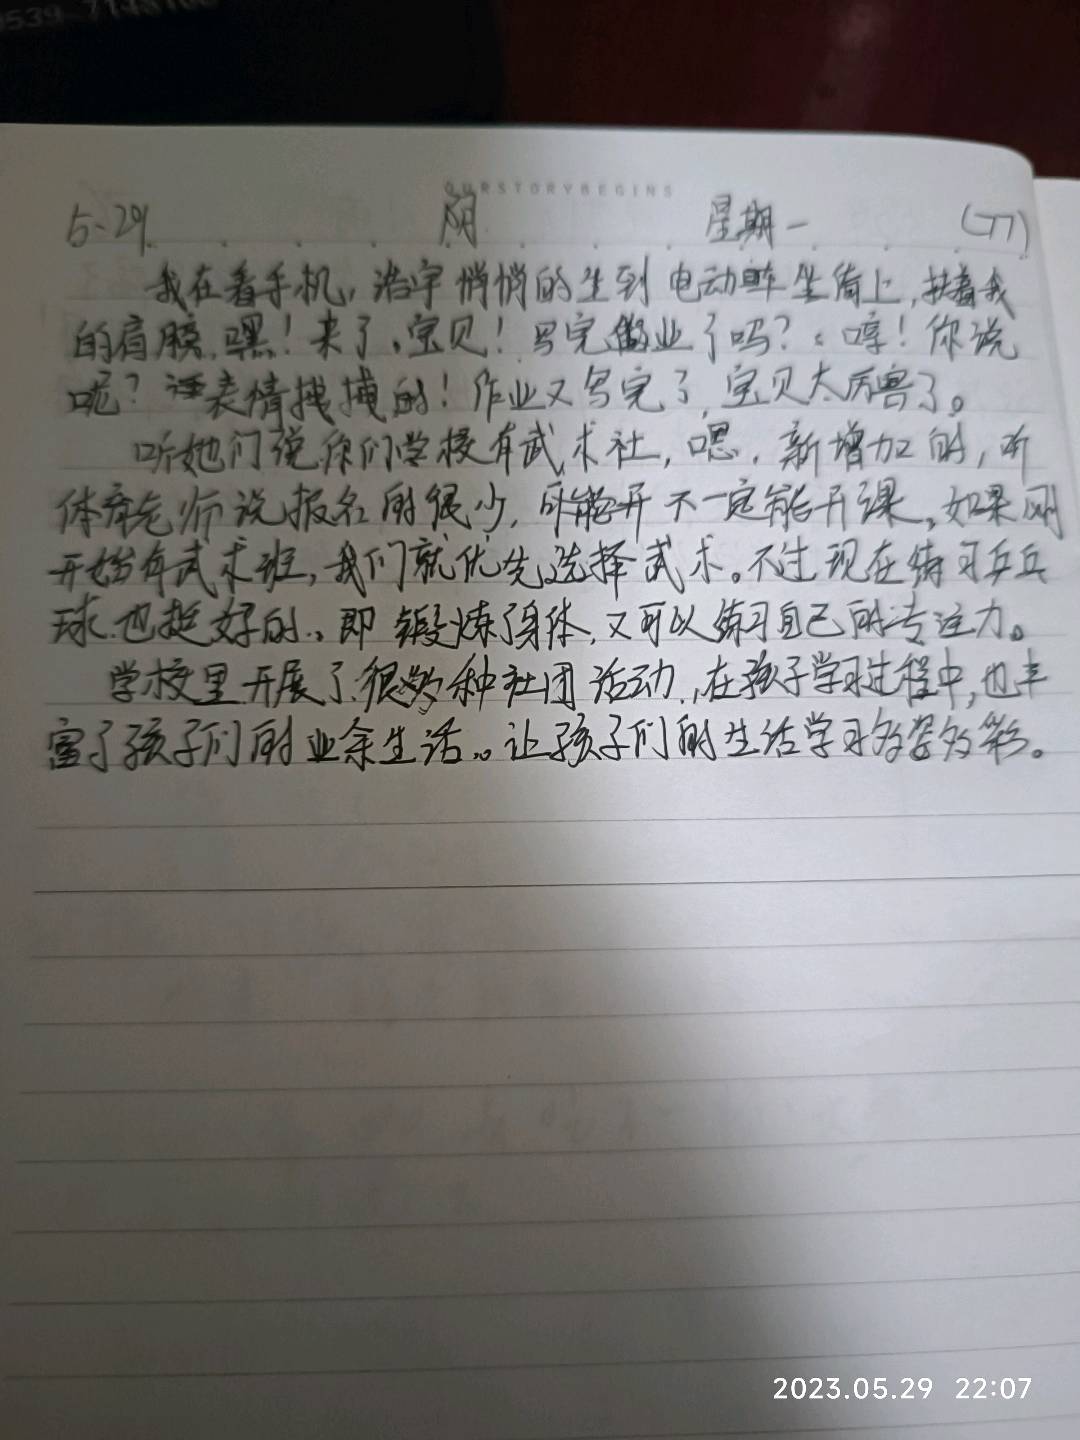 0539-7148100
OURSTORYBEGINS
5-29 阴 星期一 (77)
我在看手机,浩宇悄悄的坐到电动车坐倚上,扶着我
的肩膀,嘿!来了。宝贝!写完做业了吗?哼!你说
呢?表情拽拽的!作业又写完了,宝贝太厉害了。
听她们说你们学校有武术社,嗯,新增加的,听
体育老师说报名的很少,可能开不一定能开课。如果刚
开始有武术班,我们就优先选择武术。不过现在练习乒乓
球也挺好的、即锻炼了身体,又可以练习自己的专注力。
学校里开展了很多种社团活动,在孩子学习过程中,也丰
富了孩子们的业余生活。让孩子们的生活学习多姿多彩。
2023.05.29 22:07